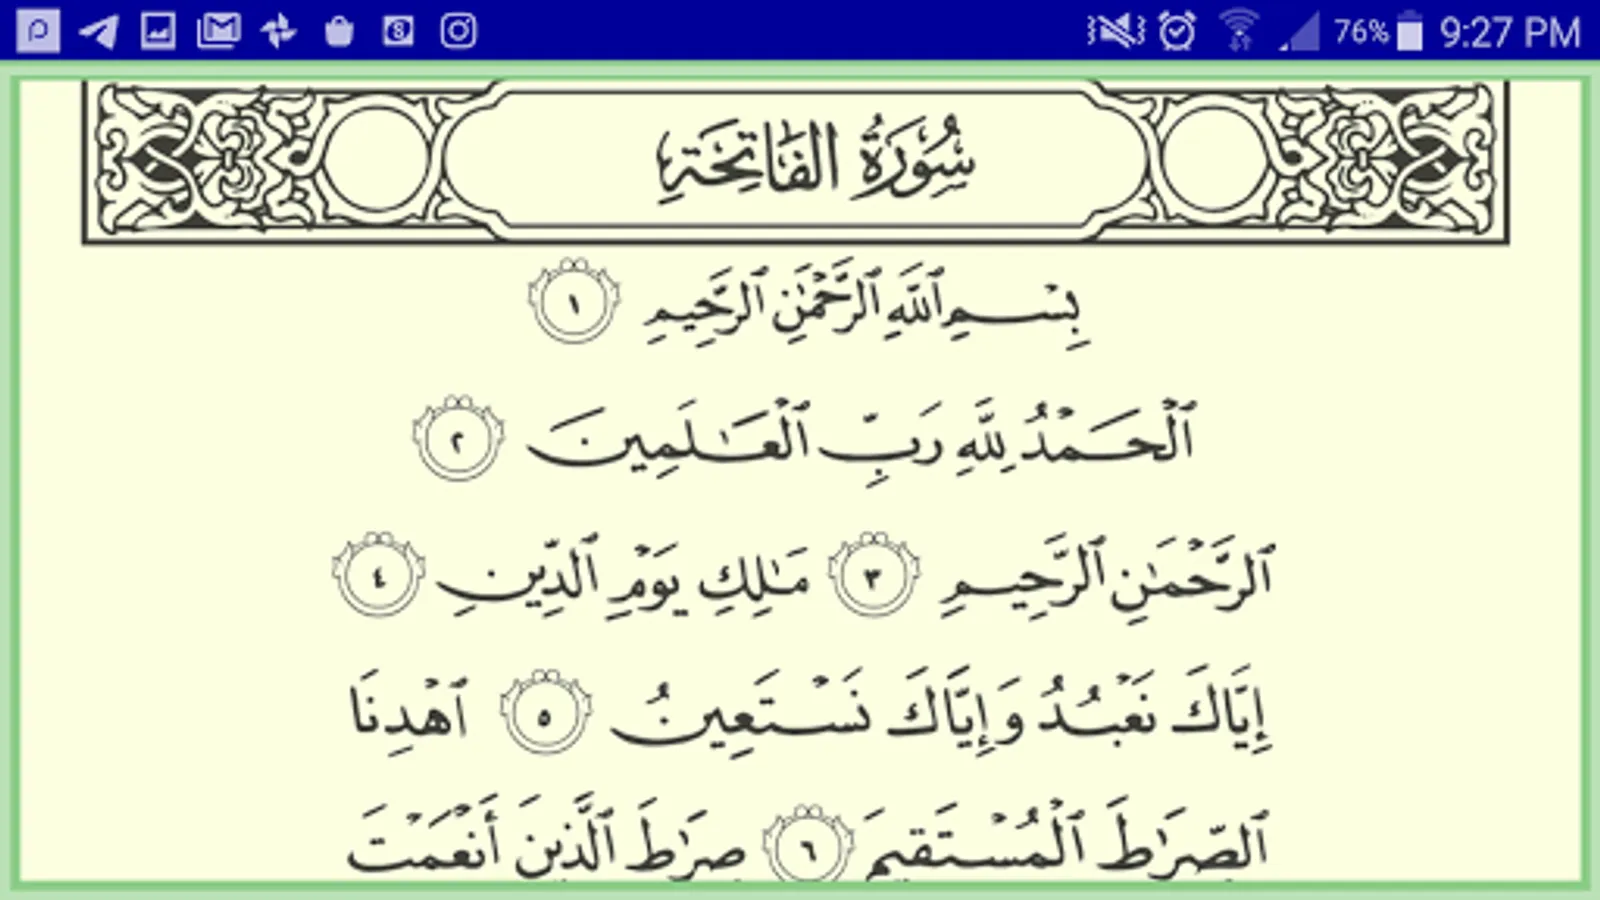 76% 9:27 PM
سُورَةُ الفَاتِحَةِ
بِسْمِ ٱللَّهِ ٱلرَّحْمَٰنِ ٱلرَّحِيمِ ١
ٱلْحَمْدُ لِلَّهِ رَبِّ ٱلْعَـٰلَمِينَ ٢
ٱلرَّحْمَٰنِ ٱلرَّحِيمِ ٣ مَـٰلِكِ يَوْمِ ٱلدِّينِ ٤
إِيَّاكَ نَعْبُدُ وَإِيَّاكَ نَسْتَعِينُ ٥ ٱهْدِنَا
ٱلصِّرَٰطَ ٱلْمُسْتَقِيمَ ٦ صِرَٰطَ ٱلَّذِينَ أَنْعَمْتَ